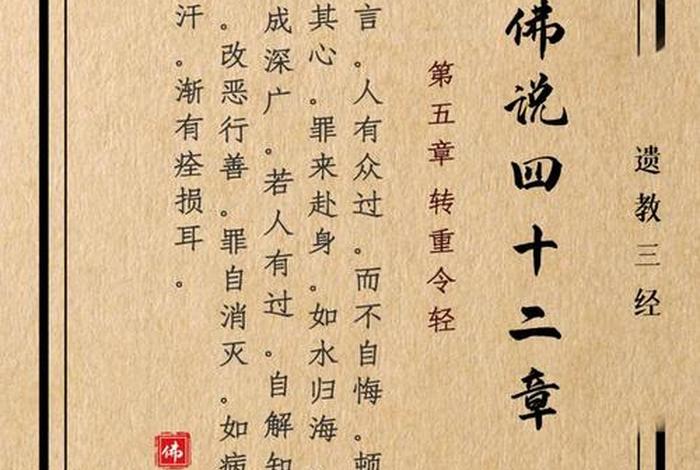 遗教三经
佛说四十二章
第五章 转重令轻
言。人有众过。而不自悔。顿
其心。罪来赴身。如水归海
成深广。若人有过。自解知
。改恶行善。罪自消灭。如病
汗。渐有痊损耳。
佛